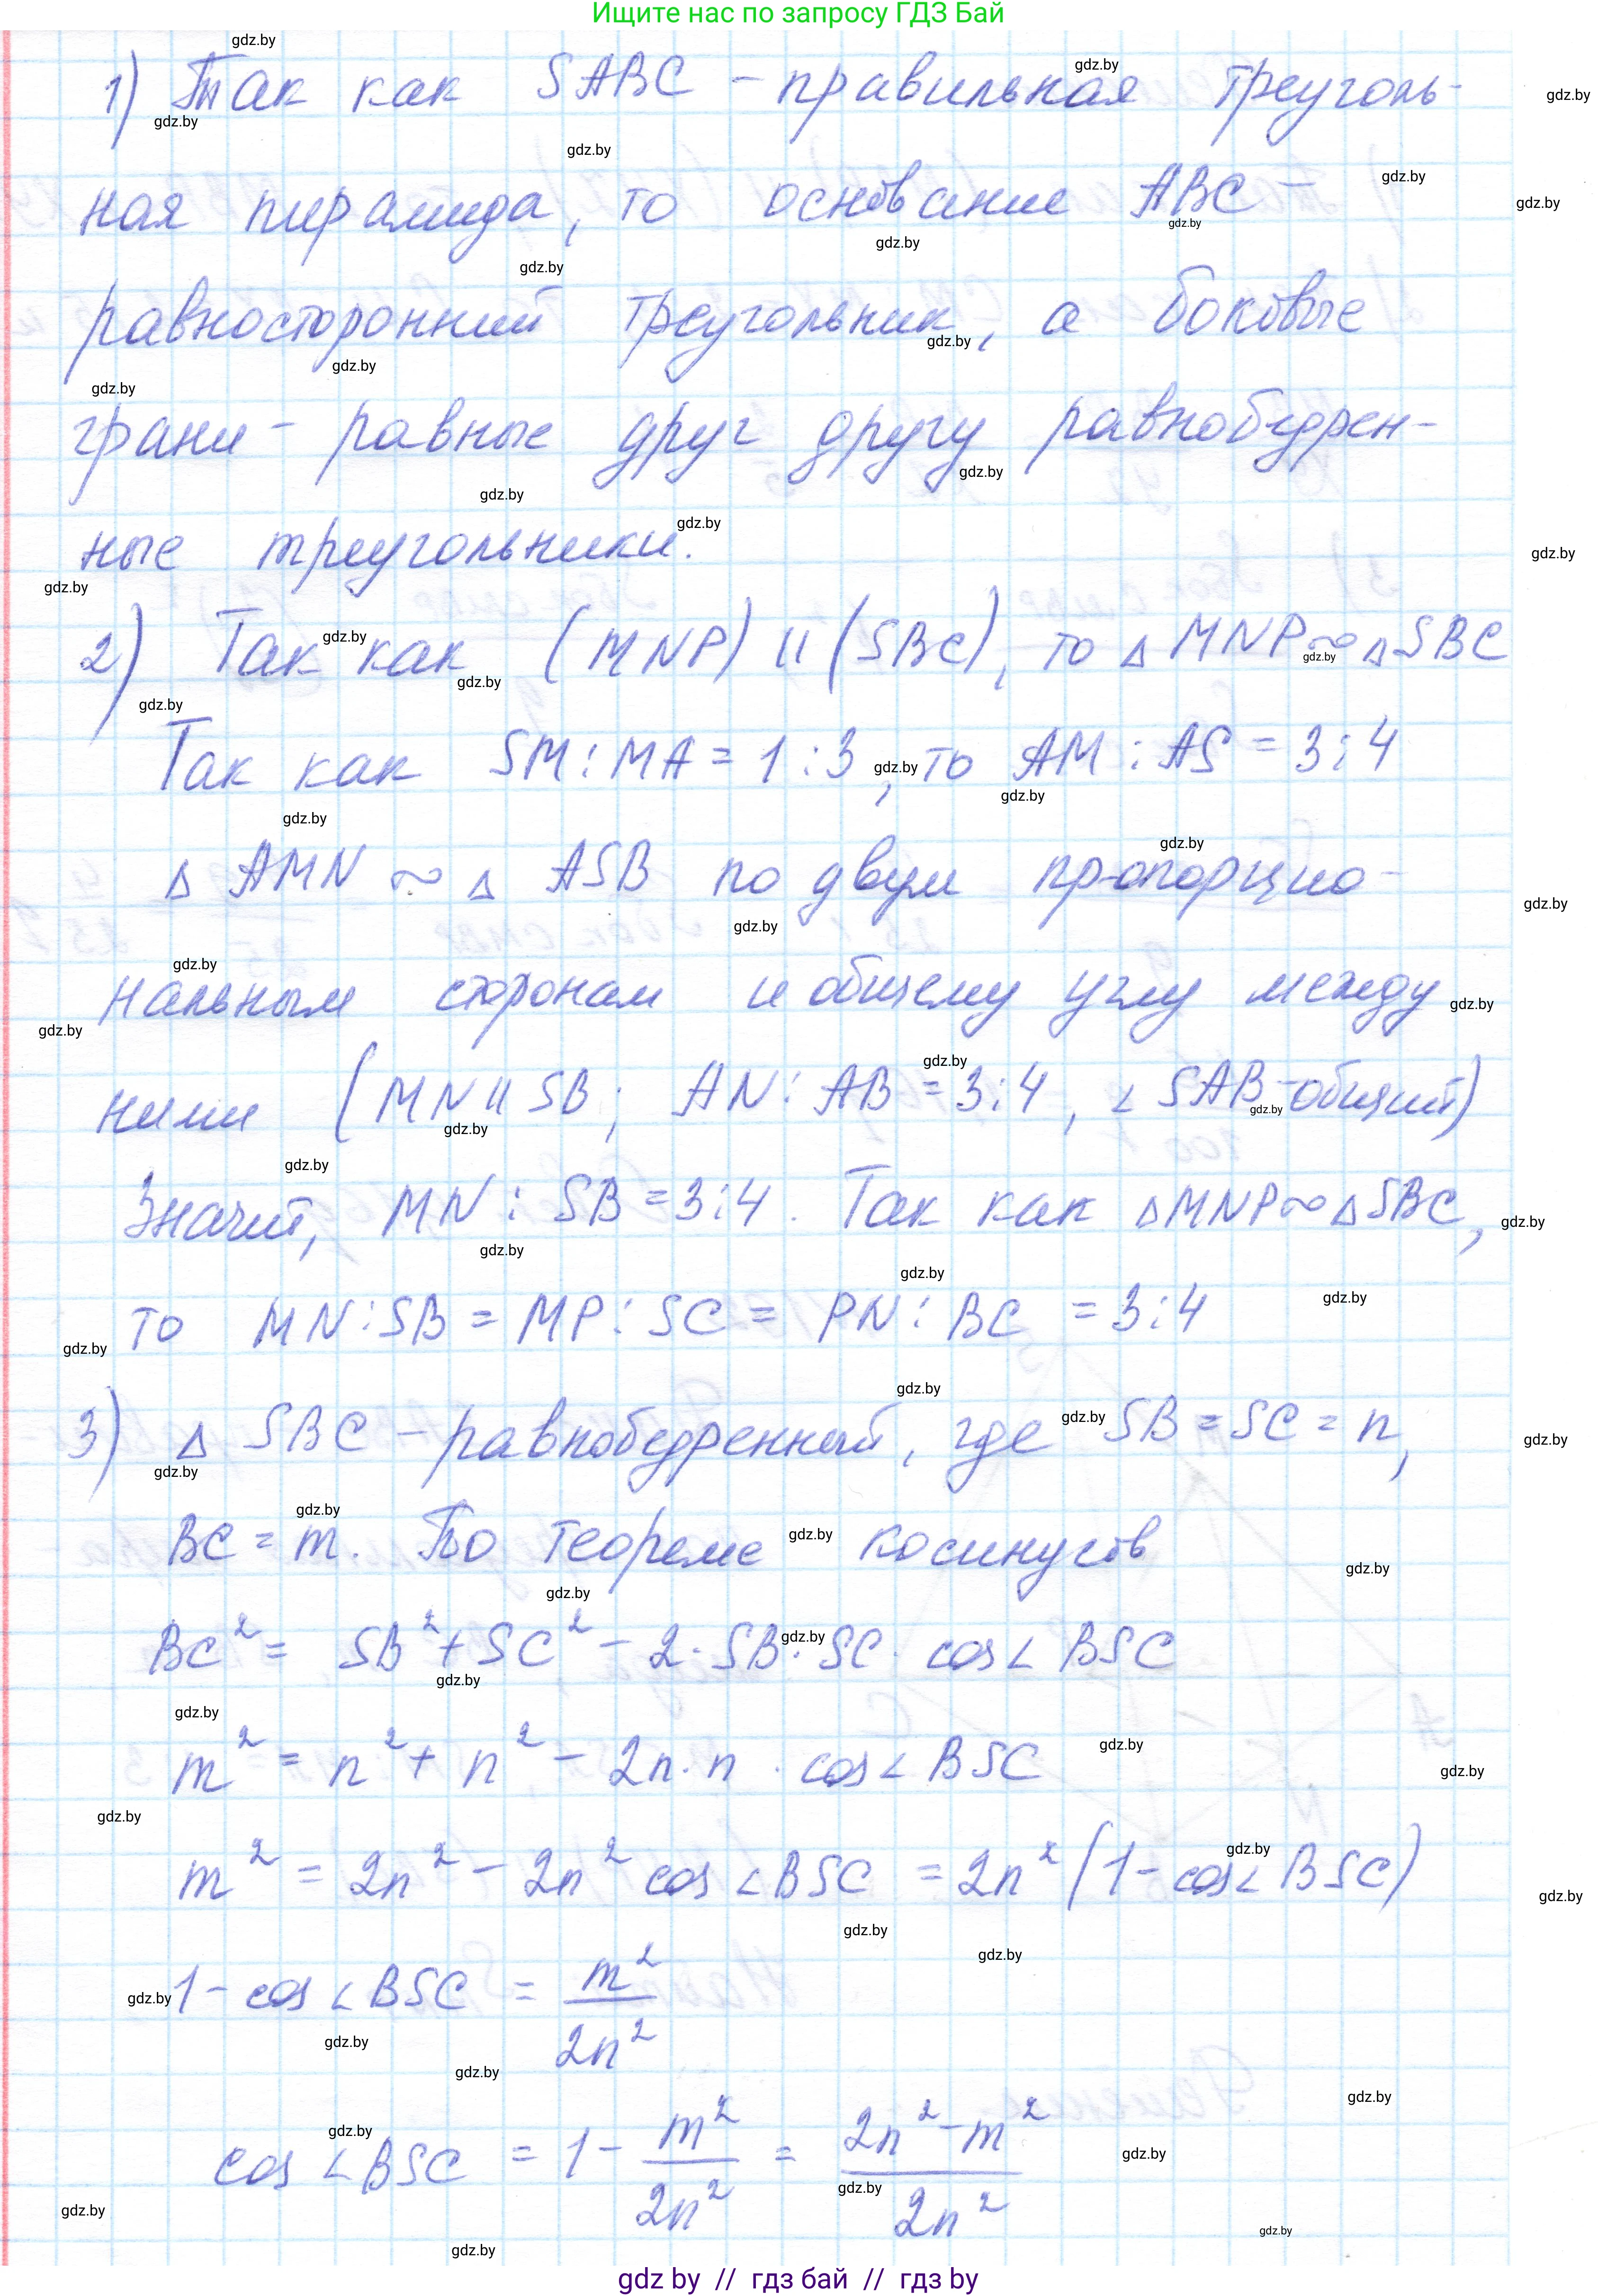 Ищите нас по запросу ГДЗ Бай
1) Так как SABC – правильная треуголь-
ная пирамида, то основание ABC –
равносторонний треугольник, а боковые
грани – равные друг другу равнобедрен-
ные треугольники.
2) Так как (MNP) || (SBC), то △MNP ∾ △SBC
Так как SM : MA = 1 : 3, то AM : AS = 3 : 4
△ AMN ∾ △ ASB по двум пропорцио-
нальным сторонам и общему углу между
ними (MN || SB; AN : AB = 3 : 4, ∠ SAB – общий)
Значит, MN : SB = 3 : 4. Так как △MNP ∾ △SBC,
то MN : SB = MP : SC = PN : BC = 3 : 4
3) △ SBC – равнобедренный, где SB = SC = n,
BC = m. По теореме косинусов
BC² = SB² + SC² – 2 · SB · SC · cos∠ BSC
m² = n² + n² – 2n · n · cos∠ BSC
m² = 2n² – 2n² cos ∠BSC = 2n² (1 – cos∠ BSC)
1 – cos ∠BSC = m² / 2n²
cos ∠BSC = 1 – m² / 2n² = 2n² – m² / 2n²
gdz by // гдз бай // гдз by